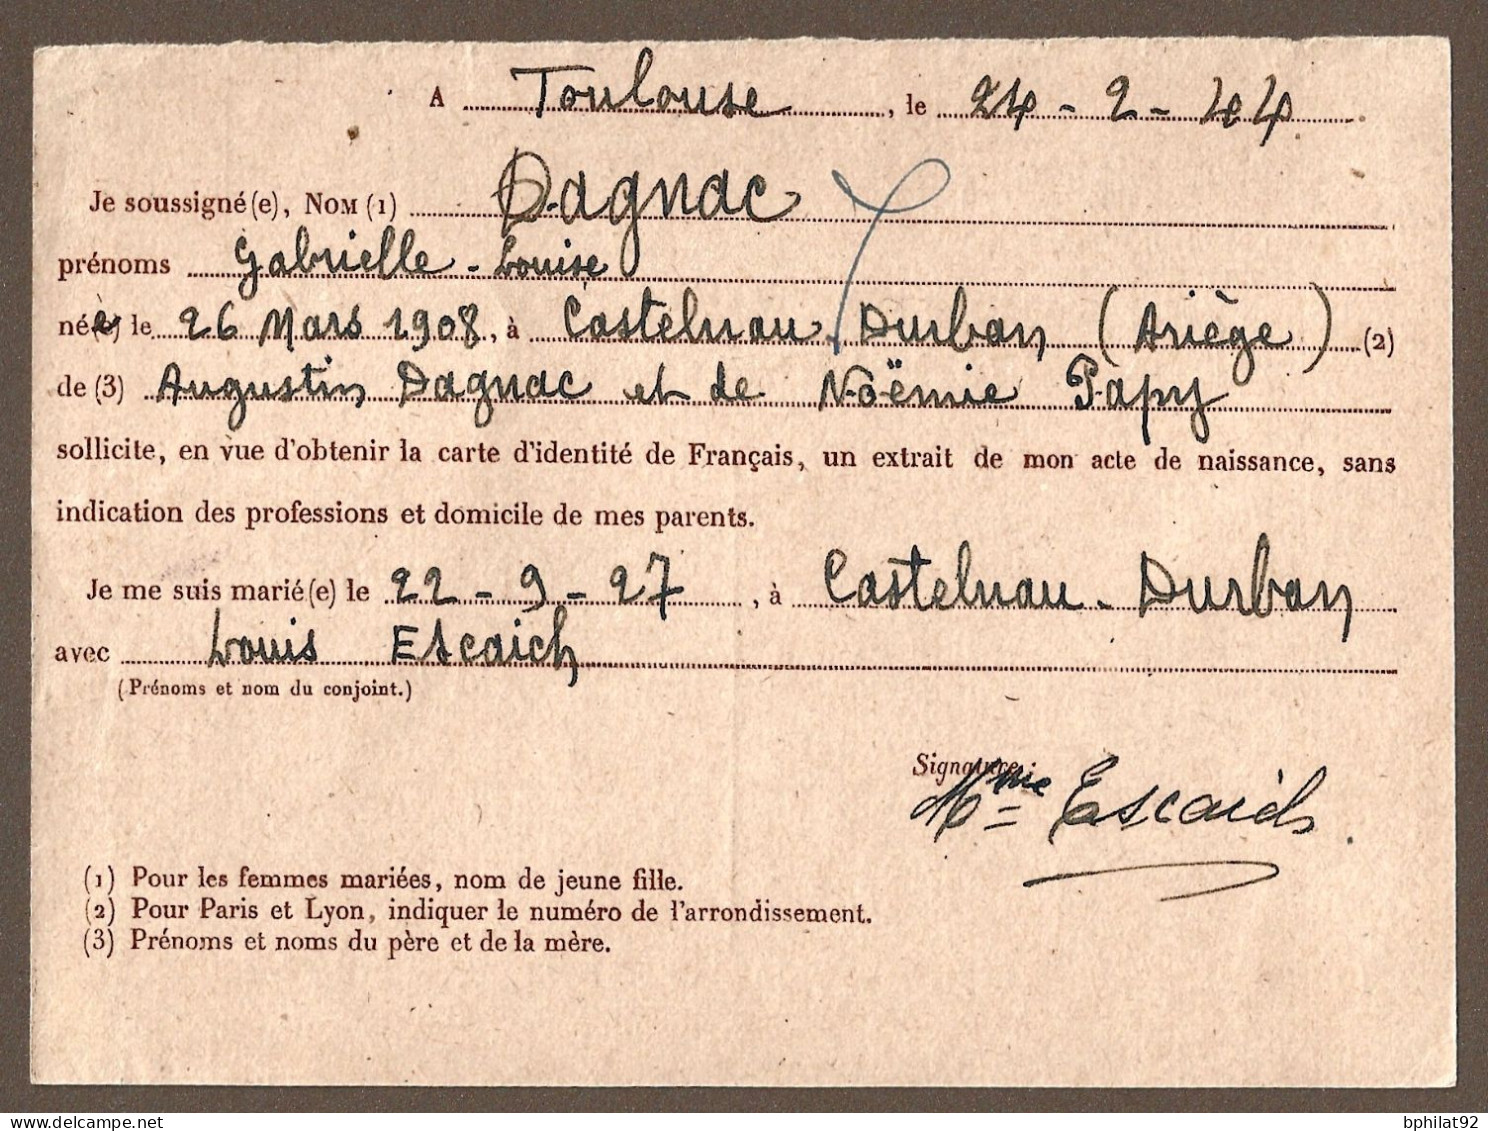 A Toulouse, le 24-2-44
Je soussigné(e), Nom (1) Dagnac
prénoms Gabrielle-Louise
né(e) le 26 Mars 1908, à Castelnau Durban (Ariège) (2)
de (3) Augustin Dagnac et de Noëmie Papy
sollicite, en vue d'obtenir la carte d'identité de Français, un extrait de mon acte de naissance, sans
indication des professions et domicile de mes parents.
Je me suis marié(e) le 22-9-27, à Castelnau-Durban
avec Louis Escaich
(Prénoms et nom du conjoint.)
Signature:
Mme Escaich
(1) Pour les femmes mariées, nom de jeune fille.
(2) Pour Paris et Lyon, indiquer le numéro de l'arrondissement.
(3) Prénoms et noms du père et de la mère.
bphilat92